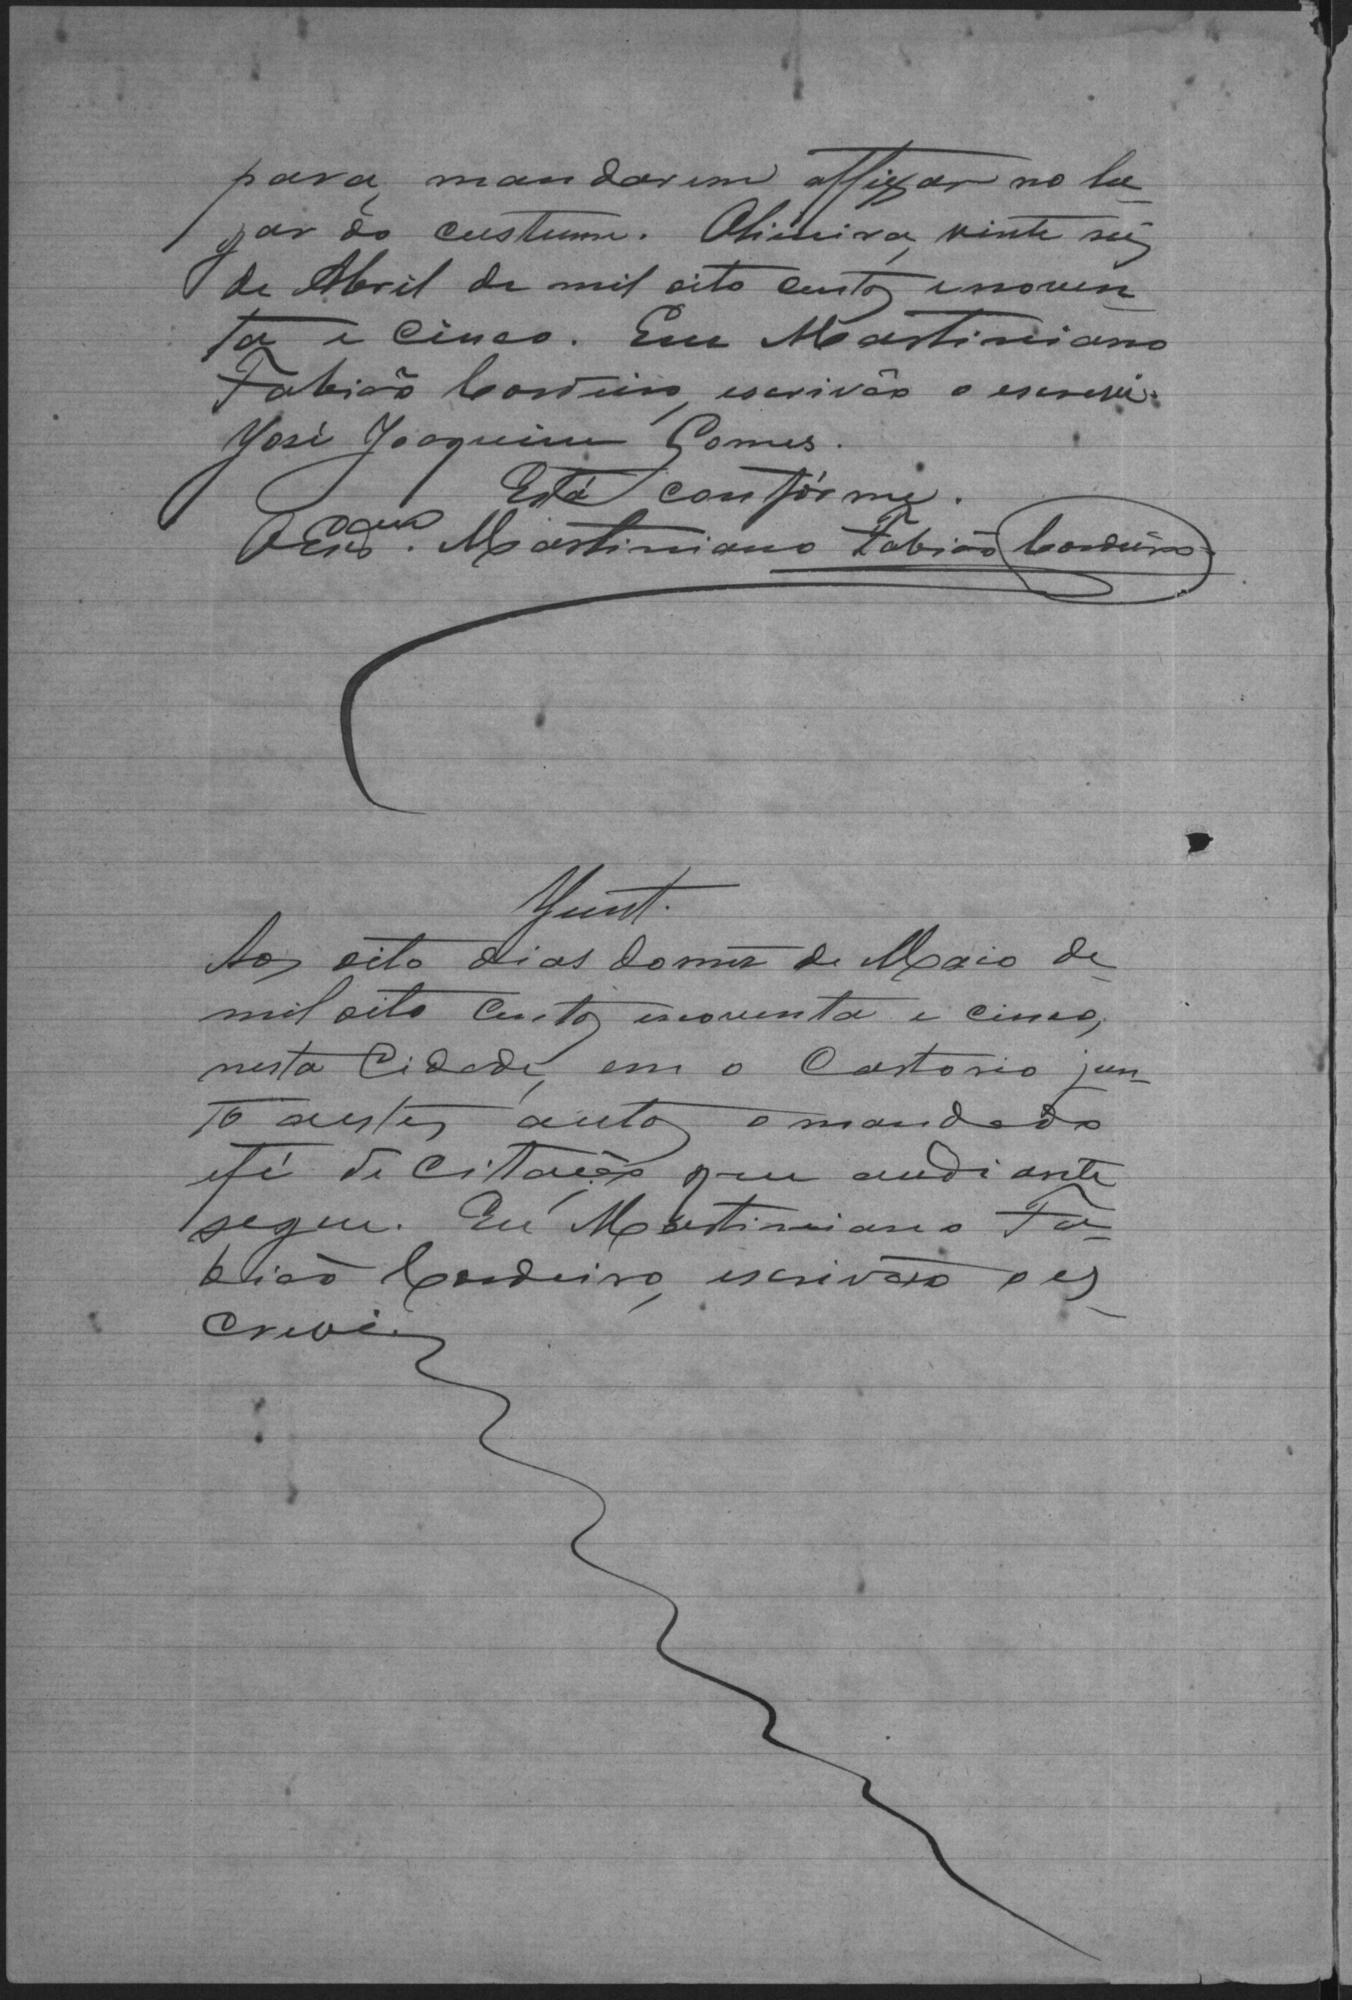 para mandarem affixar no lu-
gar do custume. Olineira, vinte seis
de Abril de mil oito centos e noven-
ta e cinco. Eu Martiniano
Fabião Cordeiro, escrivão o escrevi.
José Joaquim Gomes.
Está confórme.
O Escrivam. Martiniano Fabião Cordeiro
Junt.
Aos oito dias do mez de Maio de
mil oito centos e noventa e cinco,
nesta Cidade, em o Cartorio jun-
to a estes autos o mandado
e fé de citação que a adiante
segue. Eu Martiniano Fa-
bião Cordeiro, escrivão o es-
crevi.